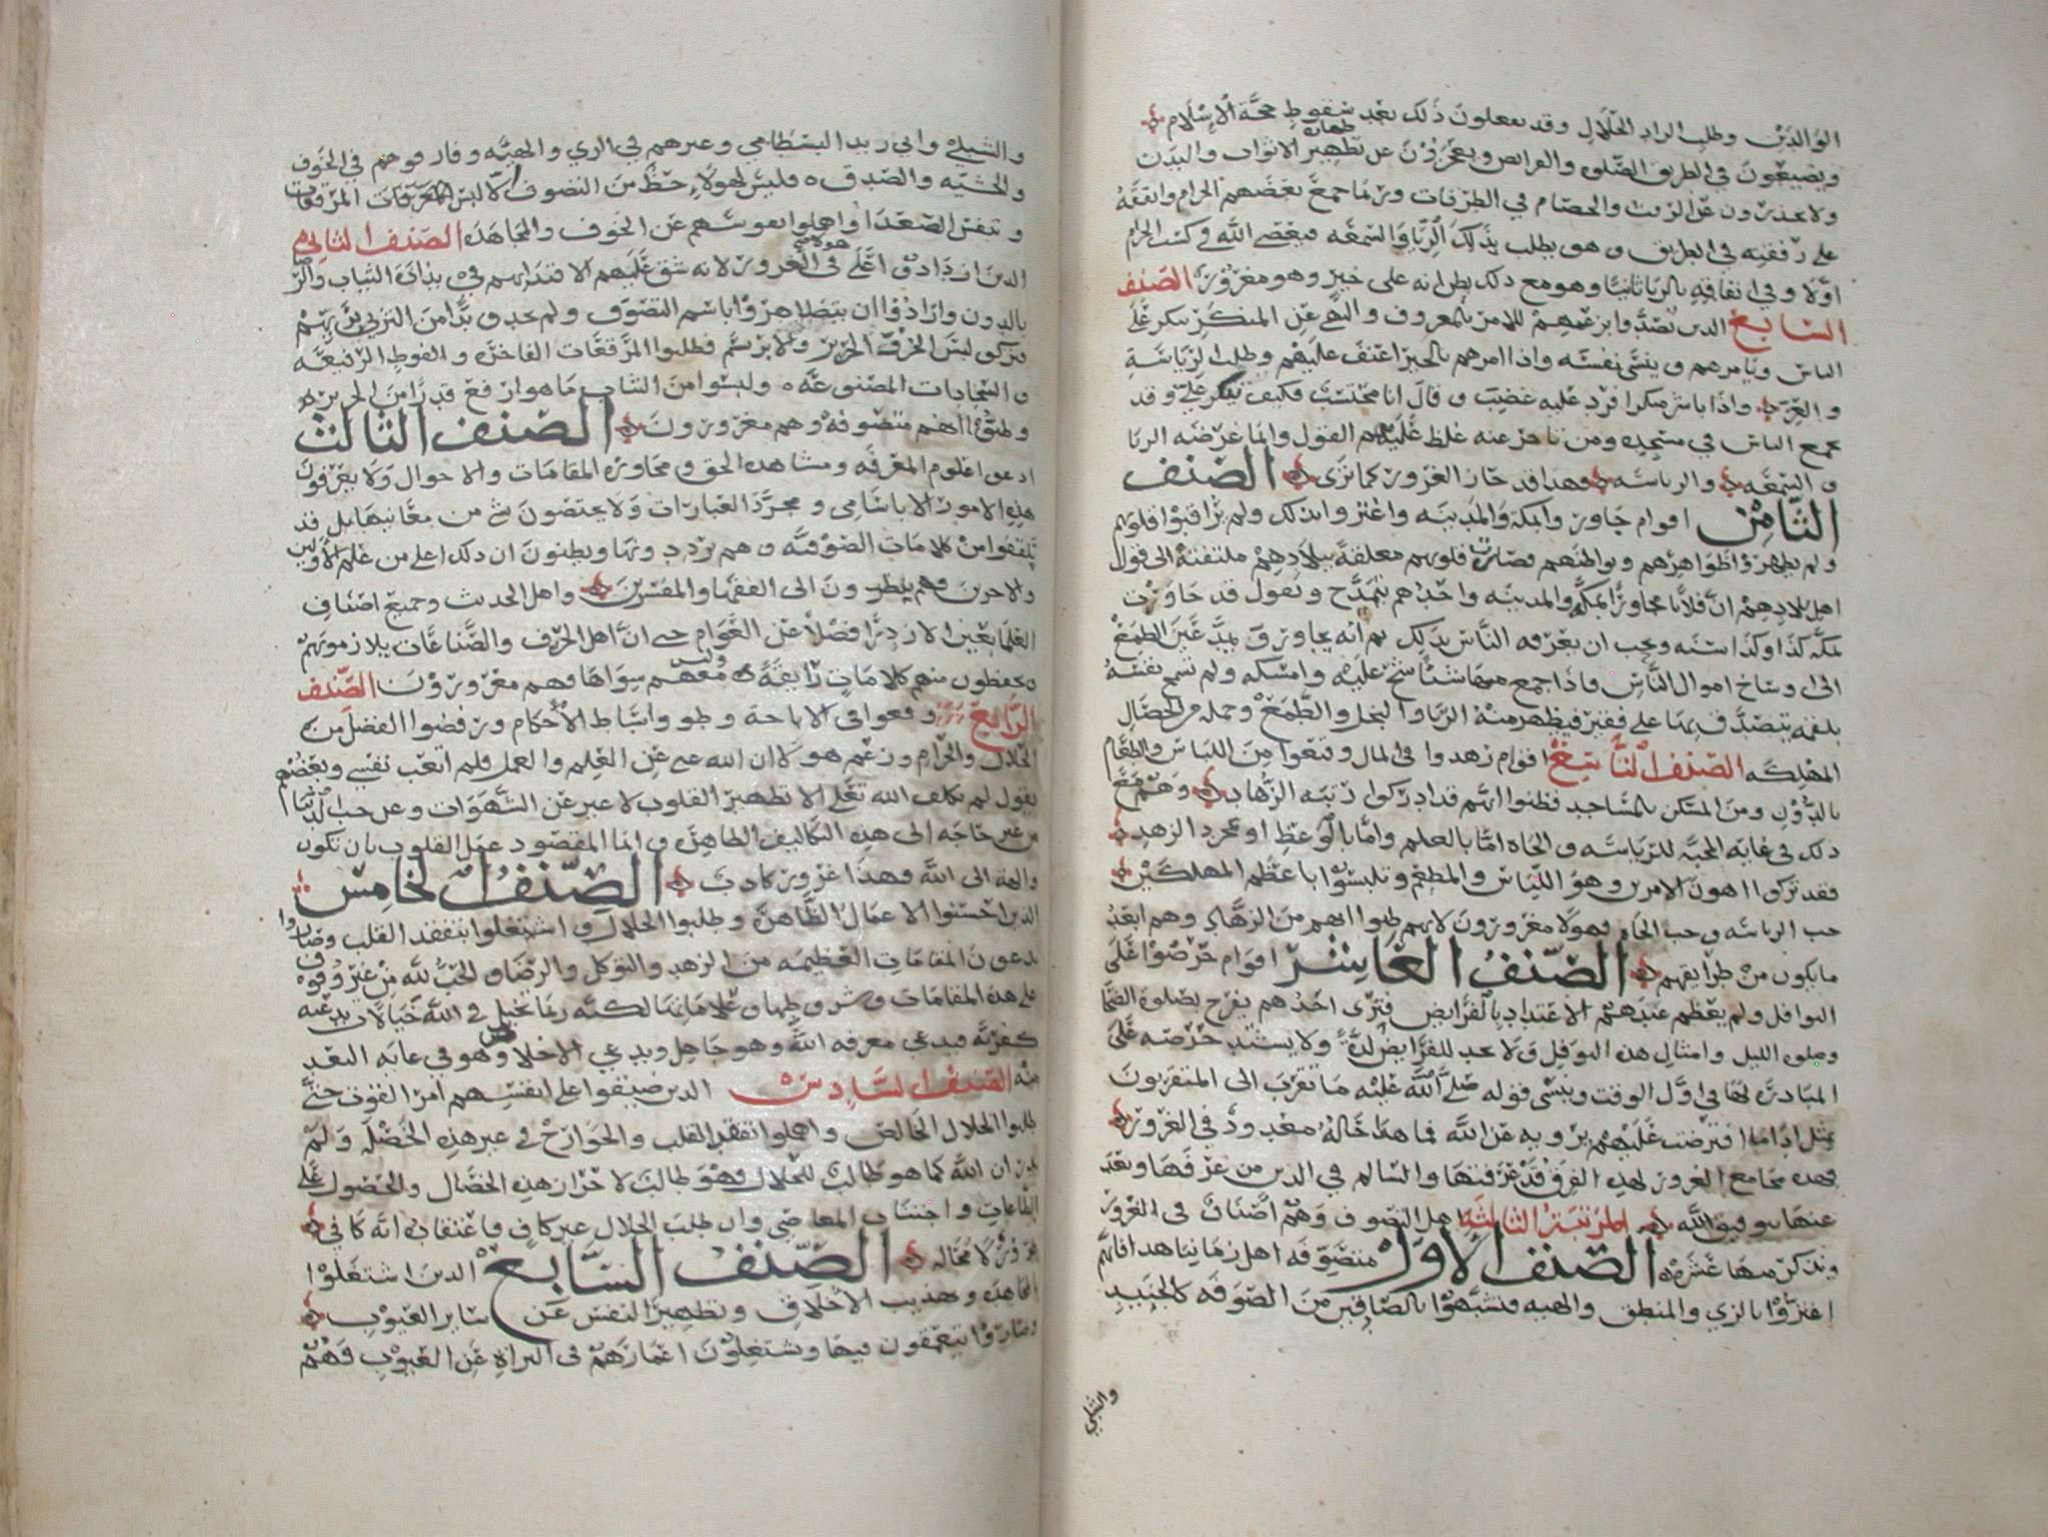 الوالدين وطلب الزاد الحلال وقد يفعلون ذلك بعد سقوط حجة الاسلام
ويضيعون في الطريق الصلوه والفرايض ويعجزون عن طهارة تطهير الاثواب والبدن
ولا يحذرون عن الرفث والخصام في الطرقات وربما جمع بعضهم الحرام وانفقه
على رفقته في الطريق وهو يطلب بذلك الريا والسمعه فيعصى الله في كسب الحرام
اولا وفي انفاقه بالريا ثانيا وهو مع ذلك يظن انه على خير وهو مغرور الصنف
السابع الذين تصدوا بزعمهم للامر بالمعروف والنهي عن المنكر ينكر على
الناس ويامرهم وينسى نفسه واذا امرهم بالخير اعنف عليهم وطلب الرياسة
والعزة واذا باشر منكرا فرد عليه غضب وقال انا محتسب فكيف تنكر علي وقد
يجمع الناس في مسجده ومن تاخر عنه غلظ عليه القول وانما غرضه الريا
والسمعه والرياسه فهذا قد حاز الغرور كما ترى الصنف
الثامن اقوام جاوروا بمكة والمدينه واغتروا بذلك ولم يراقبوا قلوبهم
ولم يطهروا ظواهرهم وبواطنهم فصارت قلوبهم معلقة ببلادهم ملتفتة الى قول
اهل بلادهم ان فلانا مجاور بمكة والمدينه واحدهم يتمدح ويقول قد جاورت
بمكه كذا وكذا سنه ويحب ان يعرفه الناس بذلك ثم انه يجاور ويمد عين الطمع
الى اوساخ اموال الناس فاذا جمع منها شيئا شح عليه وامسكه ولم تسمح نفسه
بلقمه يتصدق بها على فقير فيظهر منه الريا والبخل والطمع وجمله من الخصال
المهلكه الصنف التاسع اقوام زهدوا في المال وقنعوا من اللباس والطعام
بالدون ومن المسكن بالمساجد فظنوا انهم قد ادركوا رتبه الزهاد وهم مع
ذلك في غايه المحبه للرياسه والجاه اما بالعلم واما بالوعظ او بمجرد الزهد
فقد تركوا اهون الامرين وهو اللباس والمطعم وتلبسوا باعظم المهلكين
حب الرياسه وحب الجاه فهولا مغرورون لانهم ظنوا انهم من الزهاد وهم ابعد
ما يكون من طرايقهم الصنف العاشر اقوام حرصوا على
النوافل ولم يعظم عندهم الاعتداد بالفرايض فترى احدهم يفرح بصلوة الضحى
وصلوه الليل وامثال هذه النوافل ولا يجد للفرايض لذة ولا يشتد حرصه على
المبادرة لها في اول الوقت وينسى قوله صلى الله عليه ما تقرب الى المتقربون
بمثل اداما افترضت عليهم يرويه عن الله فما هذا حاله معدود في الغرور
فهذه مجامع الغرور لهذه الفرق قد عرفتها والسالم في الدين من عرفها وبعد
عنها بتوفيق الله المرتبة الثالثة اهل التصوف وهم اصناف في الغرور
ونذكر منها عشرة الصنف الاول متصوفه اهل زماننا هذا فانهم
اغتروا بالزي والمنطق والهيه فتشبهوا بالصادقين من الصوفه كالجنيد
والشبلي
والشبلي وابي يزيد البسطامي وغيرهم في الزي والهيبه وفارقوهم في الخوف
والخشيه والصدق فليس لهولاء حظ من التصوف الا لبس المرقعات
وتنفس الصعدا واهملوا نفوسهم عن الخوف والمجاهده الصنف الثاني هولاء
الذين ازدادوا على في الغرور لانه شق عليهم الاقتدا بهم في بذاذة الثياب والرضا
بالدون وارادوا ان يتظاهروا باسم التصوف ولم يجدوا بدا من التزيي بزيهم
فتركوا لبس الخز والحرير والابريسم فطلبوا المرقعات الفاخرة والفوط الرفيعه
والسجادات المصنوعه ولبسوا من الثياب ما هو ارفع قدرا من الحرير
وظنوا انهم متصوفه وهم مغرورون الصنف الثالث
ادعوا علوم المعرفه ومشاهده الحق ومجاوزه المقامات والاحوال ولا يعرفون
هذه الامور الا باسامي ومجرد العبارات ولا يحتضون شي من معانيها بل قد
تلقفوا من كلامات الصوفيه وهم يرددونها ويظنون ان ذلك اعلى من علم الاولين
والاخرين وهم ينظرون الى الفقها والمفسرين واهل الحديث وجميع اصناف
العلما بعين الازدرا فضلا عن العوام حتى ان اهل الحرف والصناعات يلازمونهم
ويحفظون منهم كلامات زايفة وليس معهم سواها وهم مغرورون الصنف
الرابع وقعوا في الاباحة وطووا بساط الاحكام ورفضوا الفصل بين
الحلال والحرام وزعم هولا ان الله غني عن العلم والعمل فلم اتعب نفسي وبعضهم
يقول لم يكلف الله تعلى الا تطهير القلوب لا غير عن الشهوات وعن حب الدنيا
من غير حاجه الى هذه التكاليف الظاهرة وانما المقصود عمل القلوب بان تكون
والهة الى الله وهذا غرور كاذب الصنف الخامس
الذين احسنوا الاعمال الظاهرة وطلبوا الحلال واشتغلوا بتفقد القلب وصاروا
يدعون المقامات العظيمه من الزهد والتوكل والرضا والحب لله من غير وقوف
على هذه المقامات وشروطها وعلاماتها لكنه ربما تخيل في الله خيالات بدعيه
كفريه فيدعي معرفه الله وهو جاهل ويدعي الاخلاص وهو في غايه البعد
منه الصنف السادس الذين ضيقوا على انفسهم امر القوت حتى
طلبوا الحلال الخالص واهملوا تفقد القلب والجوارح في غير هذه الخصلة ولم
يدر ان الله كما هو طالب للحلال فهو طالب لاحراز هذه الخصال والحصول على
الطاعات واجتناب المعاصي وان طلب الحلال غير كاف فاعتقاده انه كافي
غرور لا محاله الصنف السابع الذين اشتغلوا
بالمجاهده وتهذيب الاخلاق وتطهير النفس عن ساير العيوب
وصاروا يتعمقون فيها ويشتغلون اعمارهم في البراة عن العيوب فهم